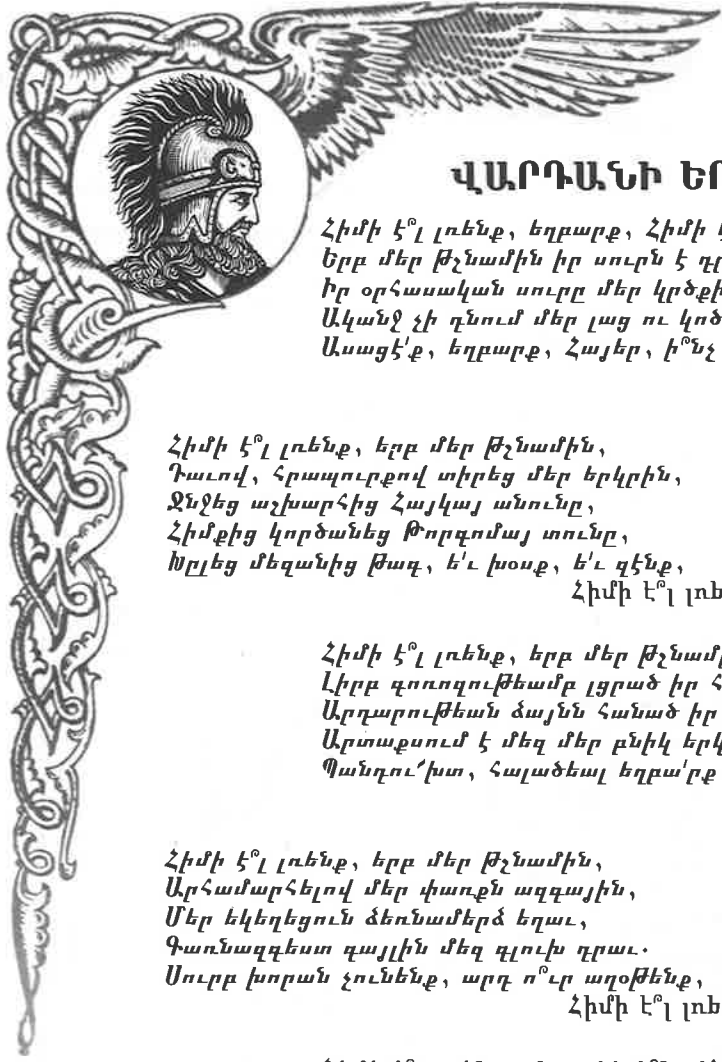 ՎԱՐԴԱՆԻ
Հիմի է՞լ լռենք, եղբարք, Հիմի
Երբ մեր թշնամին իր սուրն է
Իր օրհասական սուրը մեր կրծքի
Ականջ չի դնում մեր լաց ու
Ասացէ՛ք, եղբարք, Հայեր, ի՞նչ
Հիմի է՞լ լռենք, երբ մեր թշնամին,
Դաւով, հրապուրքով տիրեց մեր երկրին,
Ջնջեց աշխարհից Հայկայ անունը,
Հիմքից կործանեց Թորգոմայ տունը,
Խըլեց մեզանից թագ, ե՛ւ խօսք, ե՛ւ զէնք,
Հիմի է՞լ
Հիմի է՞լ լռենք, երբ մեր
Լիրբ գոռոզութեամբ լցրած իր
Արդարութեան ձայնն հանած իր
Արտաքսում է մեզ մեր բնիկ
Պանդո՛ւխտ, հալածեալ եղբա՛րք
Հիմի է՞լ լռենք, երբ մեր թշնամին,
Արհամարհելով մեր փառքն ազգային,
Մեր եկեղեցուն ձեռնամերձ եղաւ,
Գառնազգեստ գայլին մեզ գլուխ դրաւ.
Սուրբ խորան չունենք, արդ ո՞ւր աղօթենք,
Հիմի է՞լ